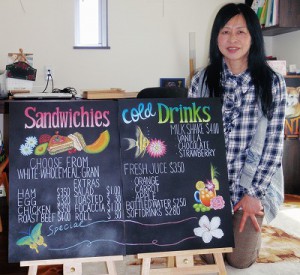 Sandwichies
CHOOSE FROM
WHITE WHOLEMEAL GRAIN
EXTRAS
HAM $350
EGG
CHICKEN
ROAST BEEF $400
ROLL $.50
Special
Cold Drinks
MILKSHAKE $4.00
VANILLA
CHOCOLATE
STRAWBERRY
FRESH JUICE $3.50
ORANGE
CARROT
BOTTLED WATER $2.50
SOFTDRINKS $2.80